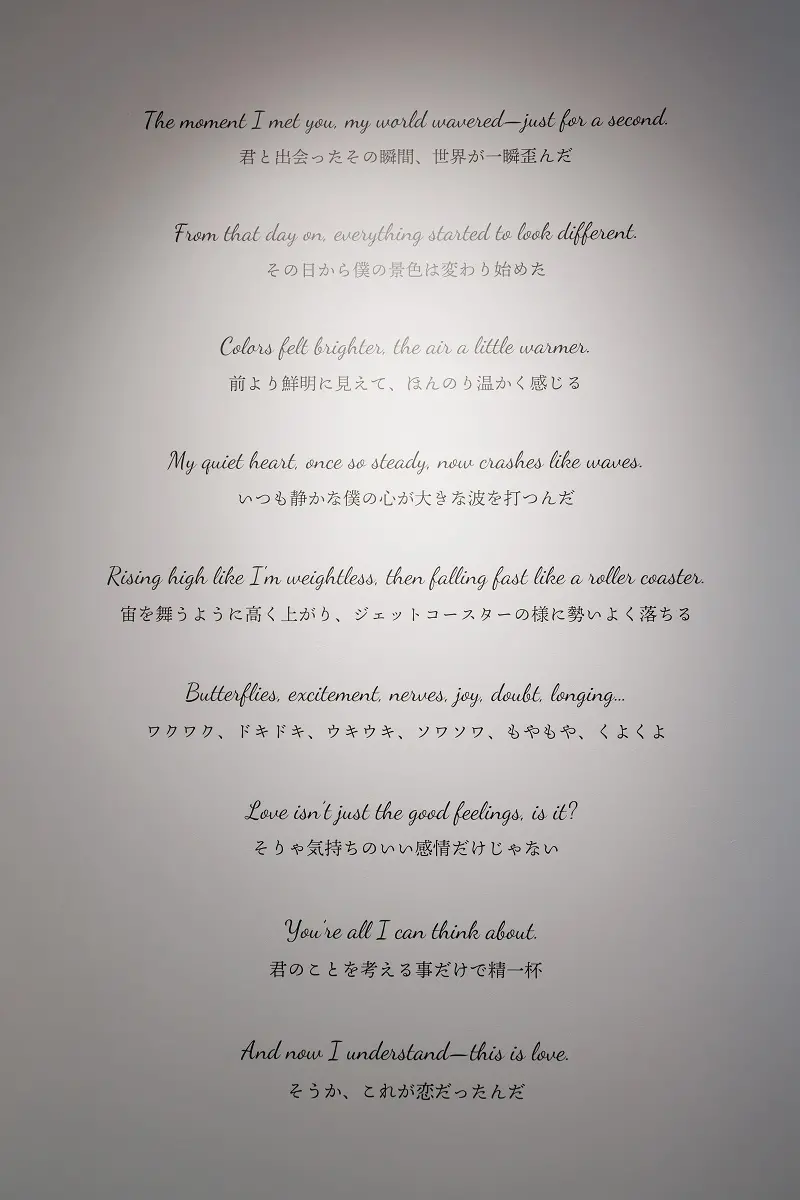 The moment I met you, my world wavered—just for a second.
君と出会ったその瞬間、世界が一瞬歪んだ
From that day on, everything started to look different.
その日から僕の景色は変わり始めた
Colors felt brighter, the air a little warmer.
前より鮮明に見えて、ほんのり温かく感じる
My quiet heart, once so steady, now crashes like waves.
いつも静かな僕の心が大きな波を打つんだ
Rising high like I'm weightless, then falling fast like a roller coaster.
宙を舞うように高く上がり、ジェットコースターの様に勢いよく落ちる
Butterflies, excitement, nerves, joy, doubt, longing...
ワクワク、ドキドキ、ウキウキ、ソワソワ、もやもや、くよくよ
Love isn't just the good feelings, is it?
そりゃ気持ちのいい感情だけじゃない
You're all I can think about.
君のことを考える事だけで精一杯
And now I understand—this is love.
そうか、これが恋だったんだ